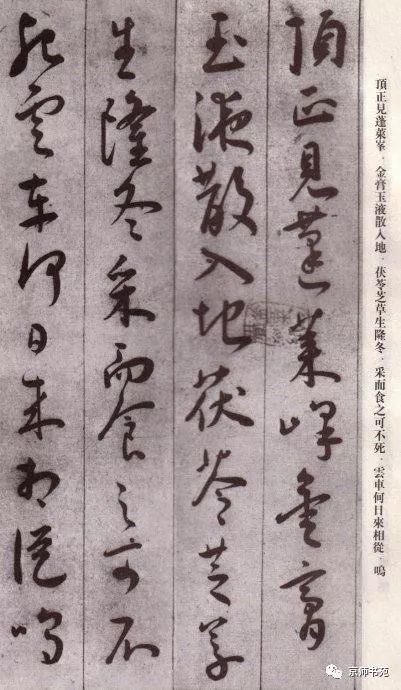 頂正見蓬萊峯。金膏玉液散入地。茯苓芝草生隆冬。采而食之可不死。雲車何日來相從。嗚
頂正見蓬萊峰金膏
玉液散入地茯苓芝草
生隆冬采而食之可不
死雲車何日来相從嗚
京师书苑